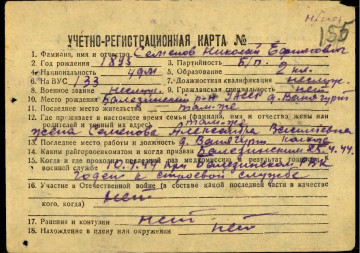 155
УЧЕТНО-РЕГИСТРАЦИОННАЯ КАРТА №
1. Фамилия, имя и отчество Семенов Николай Ефимович
2. Год рождения 1893 3. Партийность б/п
4. Национальность удм 5. Образование 2 кл.
6. На ВУС 133 7. Должностная квалификация неслуж.
8. Военное звание неслуж. 9. Гражданская специальность нет
10. Место рождения Балезинский р-н д.
11. Последнее место жительства там-же
12. Где проживает в настоящее время семья (фамилия, имя и отчество жены или
родителей и полный их адрес) там-же
жена Семенова Александра
13. Последнее место работы и должность д. колхоз
14. Каким райгорвоенкоматом и когда призван Балезинским 4.44.
15. Когда и где проходил последний раз медкомиссию и результат годности к
военной службе 10.4.44 при Балезинском РВК
годен к строевой службе
16. Участие в Отечественной войне (в составе какой последней части в качестве
кого, когда) нет
17. Ранения и контузии нет
18. Нахождение в плену или окружении нет